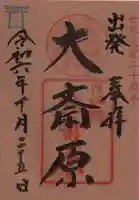 出発
奉拝
大斎原
令和六年十月二十五日